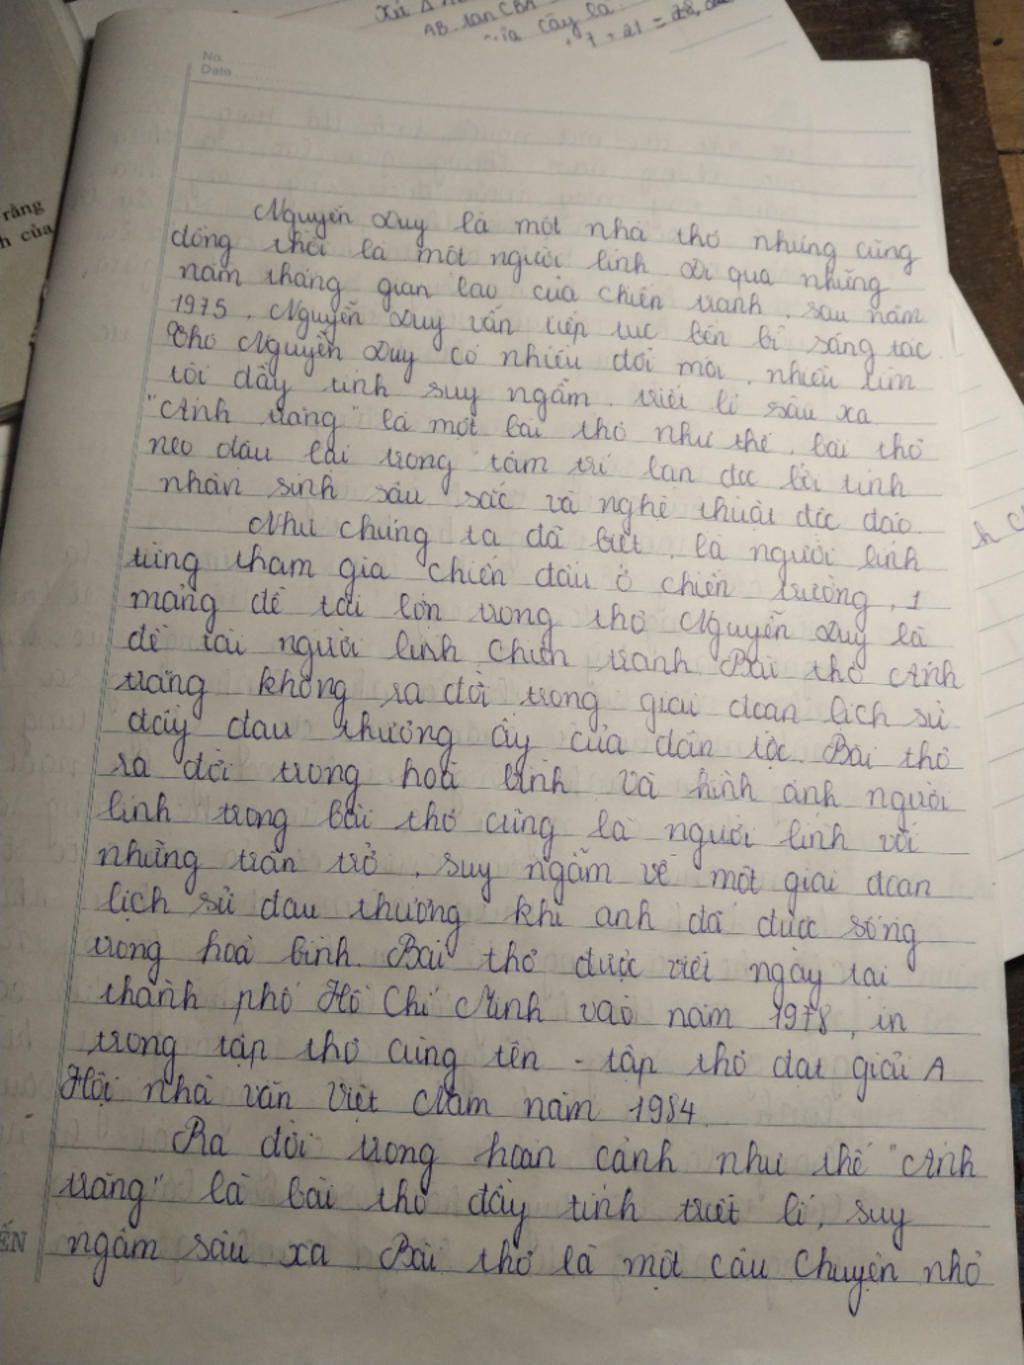 AB. tan CBA
cây là
No.
Date
rằng
của
Nguyễn Duy là một nhà thơ nhưng cũng
đồng thời là một người lính đi qua những
năm tháng gian lao của chiến tranh, sau năm
1975, Nguyễn Duy vẫn tiếp tục bền bỉ sáng tác.
Thơ Nguyễn Duy có nhiều đổi mới, nhiều tìm
tòi đầy tính suy ngẫm, triết lí sâu xa.
"Ánh trăng" là một bài thơ như thế, bài thơ
neo đậu lại trong tâm trí bạn đọc bởi tính
nhân sinh sâu sắc và nghệ thuật độc đáo.
Như chúng ta đã biết, là người lính
từng tham gia chiến đấu ở chiến trường, 1
mảng đề tài lớn trong thơ Nguyễn Duy là
đề tài người lính, chiến tranh. Bài thơ Ánh
trăng không ra đời trong giai đoạn lịch sử
đầy đau thương ấy của dân tộc. Bài thơ
ra đời trong hoà bình và hình ảnh người
lính trong bài thơ cũng là người lính với
những trăn trở, suy ngẫm về một giai đoạn
lịch sử đau thương khi anh đã được sống
trong hoà bình. Bài thơ được viết ngay tại
thành phố Hồ Chí Minh vào năm 1978, in
trong tập thơ cùng tên - tập thơ đạt giải A
Hội nhà văn Việt Nam năm 1984.
Ra đời trong hoàn cảnh như thế "Ánh
trăng" là bài thơ đầy tính triết lí, suy
ngẫm sâu xa. Bài thơ là một câu chuyện nhỏ